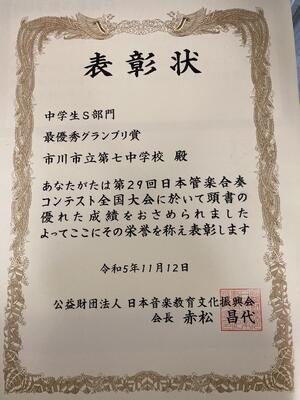 表彰状
中学生S部門
最優秀グランプリ賞
市川市立第七中学校 殿
あなたがたは第29回日本管楽合奏
コンテスト全国大会に於いて頭書の
優れた成績をおさめられました
よってここにその栄誉を称え表彰します
令和5年11月12日
公益財団法人 日本音楽教育文化振興会
会長 赤松 昌代